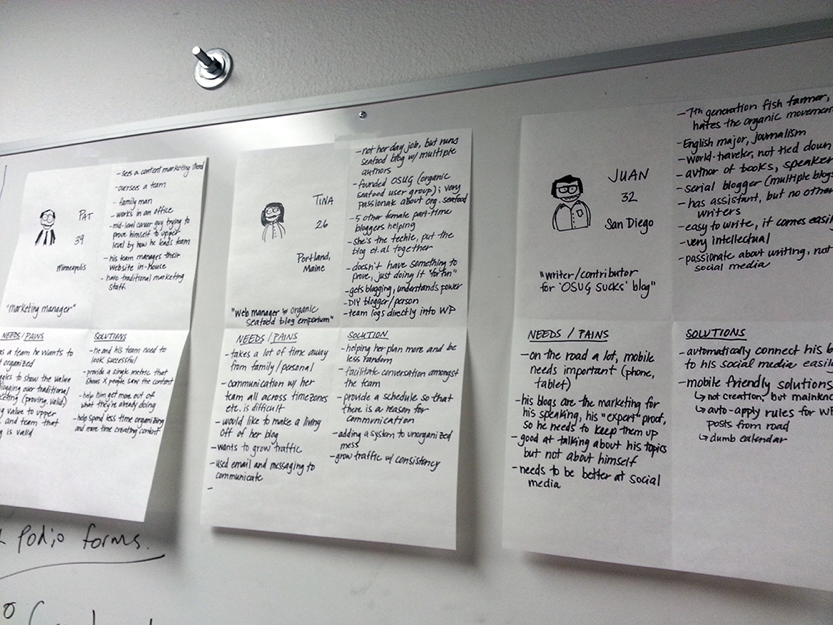 - sees a content marketing
- oversees a team
- family man
- works in an office
- mid-level career guy trying to
prove himself to upper
level by how he leads team
- his team manages their
website in-house
- have traditional marketing
staff
PAT
39
Minneapolis
"marketing manager"
NEEDS/PAINS
a team he wants to
organized
to show the value
blogging over traditional
(proving valid)
value to upper
and team that
is valid
SOLUTIONS
- he and his team need to
look successful
- provide a single metric that
shows X people saw the content
- help him get more out of
what they're already doing
- help spend less time organizing
and more time creating content
- not her day job, but runs
seafood blog w/ multiple
authors
- founded OSUG (organic
seafood user group); very
passionate about org. seafood
- 5 other female part-time
bloggers helping
- she's the techie, put the
blog et.al together
- doesn't have something to
prove, just doing it "for fun"
- gets blogging, understands power
- DIY blogger/person
- team logs directly into WP
TINA
26
Portland,
Maine
"web manager organic
seafood blog emporium"
NEEDS/PAINS
- takes a lot of time away
from family/personal
- communication w/ her
team all across timezones
etc. is difficult
- would like to make a living
off of her blog
- wants to grow traffic
- used email and messaging to
communicate
-
SOLUTION
- helping her plan more and be
less random
- facilitate conversation amongst
the team
- provide a schedule so that
there is a reason for
communication
- adding a system to unorganized
mess
- grow traffic w/ consistency
- 7th generation fish farmer,
hates the organic movement
- English major, journalism
- world-traveler, not tied down
- author of books, speaker
- serial blogger (multiple blogs
- has assistant, but no other
writers
- easy to write, it comes easily
- very intellectual
- passionate about writing, not
social media
JUAN
32
San Diego
"writer/contributor
for 'OSUG SUCKS' blog"
NEEDS / PAINS
- on the road a lot, mobile
needs important (phone,
tablet)
- his blogs are the marketing for
his speaking, his "expert" proof,
so he needs to keep them up
- good at talking about his topics
but not about himself
- needs to be better at social
media
SOLUTIONS
- automatically connect his b
to his social media easil
- mobile friendly solutions
↳ not creation, but
↳ auto-apply rules for WP
posts from road
↳ dumb calendar
Podio forms.